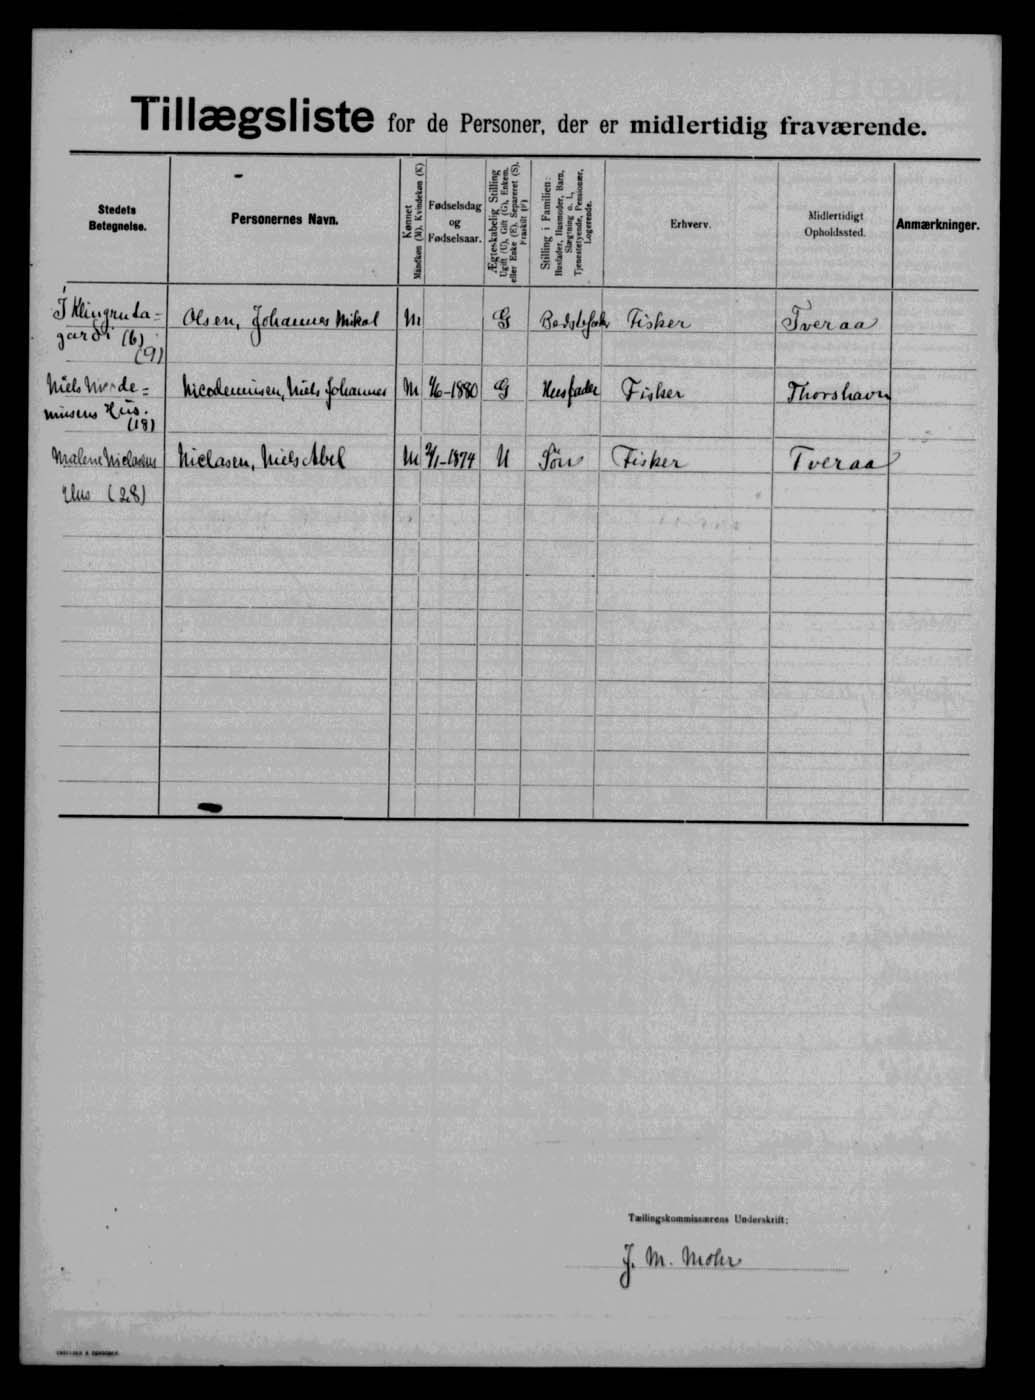 Tillægsliste for de Personer, der er midlertidig fraværende.
Stedets Betegnelse.
Personernes Navn.
Kønnet
Mandkøn (M). Kvindekøn (K)
Fødselsdag
og
Fødselsaar.
Ægteskabelig Stilling
Ugift (U), Gift (G), Enkem.
eller Enke (E), Separeret (S),
Fraskilt (F)
Stilling i Familien:
Husfader, Husmoder, Barn,
Slægtning o. l,
Tjenestetyende, Pensionær,
Logerende.
Erhverv.
Midlertidigt
Opholdssted.
Anmærkninger.
Olsen, Johannes Mikal M G Bedstefader Fisker Tveraa
(6)
(9)
Niels Nicodemusen, Niels Johannes M -1880 G Husfader Fisker Thorshavn
Hus.
(18)
Malene Niclasens Niclasen, Niels Abel M -1874 U Søn Fisker Tveraa
Hus (28)
Tællingskommissærens Underskrift:
J. M. Mohr